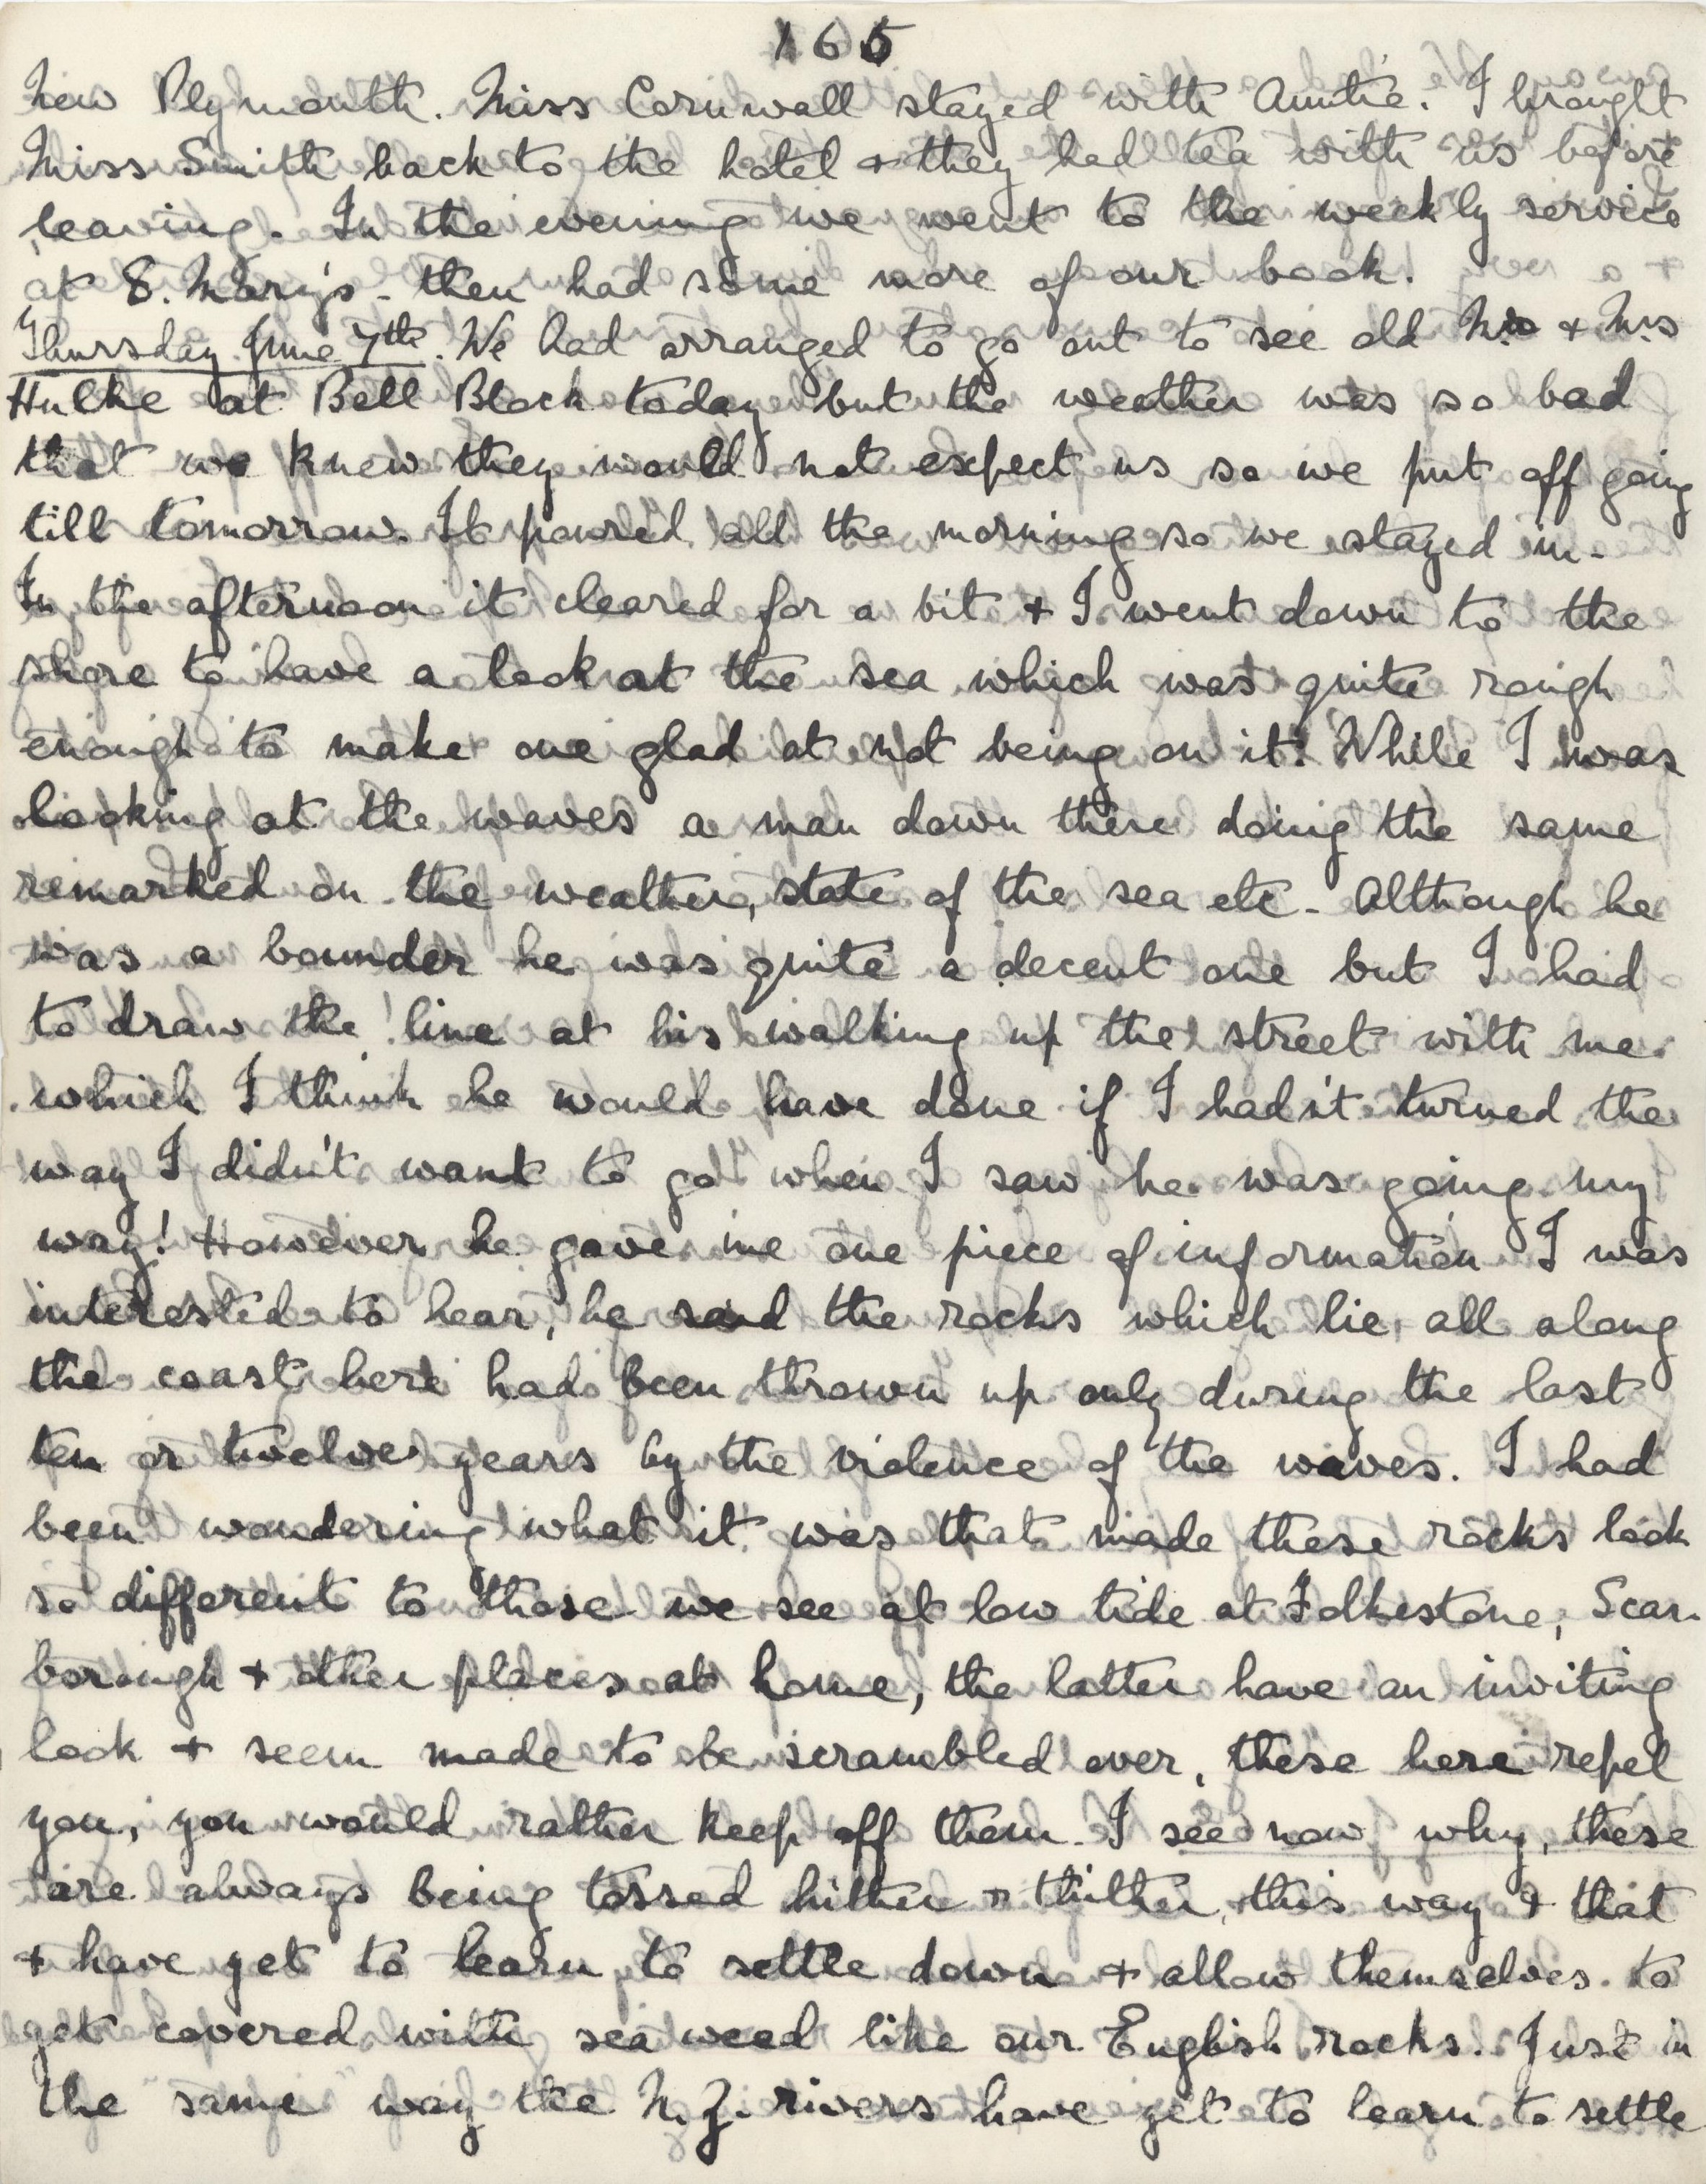 165
New Plymouth. Miss Cornwall stayed with Auntie. I brought
Miss Smith back to the hotel + they had tea with us before
leaving. In the evening we went to the weekly service
at S. Mary's - then had some more of our book.
Thursday June 7th. We had arranged to go out to see old Mr + Mrs
Hulke at Bell Block today but the weather was so bad
that we knew they would not expect us so we put off going
till tomorrow. It poured all the morning so we stayed in.
In the afternoon it cleared for a bit + I went down to the
shore to have a look at the sea which was quite rough
enough to make one glad at not being on it! While I was
looking at the waves a man down there doing the same
remarked on the weather, state of the sea etc. Although he
was a bounder he was quite a decent one but I had
to draw the line at his walking up the street with me
which I think he would have done if I hadn't turned the
way I didn't want to go when I saw he was going my
way! However he gave me one piece of information I was
interested to hear, he said the rocks which lie all along
the coast here had been thrown up only during the last
ten or twelve years by the violence of the waves. I had
been wondering what it was that made these rocks look
so different to those we see at low tide at Folkestone, Scar-
borough + other places at home, the latter have an inviting
look + seem made to be scrambled over, these here repel
you, you would rather keep off them. I see now why, these
are always being tossed hither + thither, this way + that
+ have yet to learn to settle down + allow themselves to
get covered with sea weed like our English rocks. Just in
the same way the N.Z. rivers have yet to learn to settle